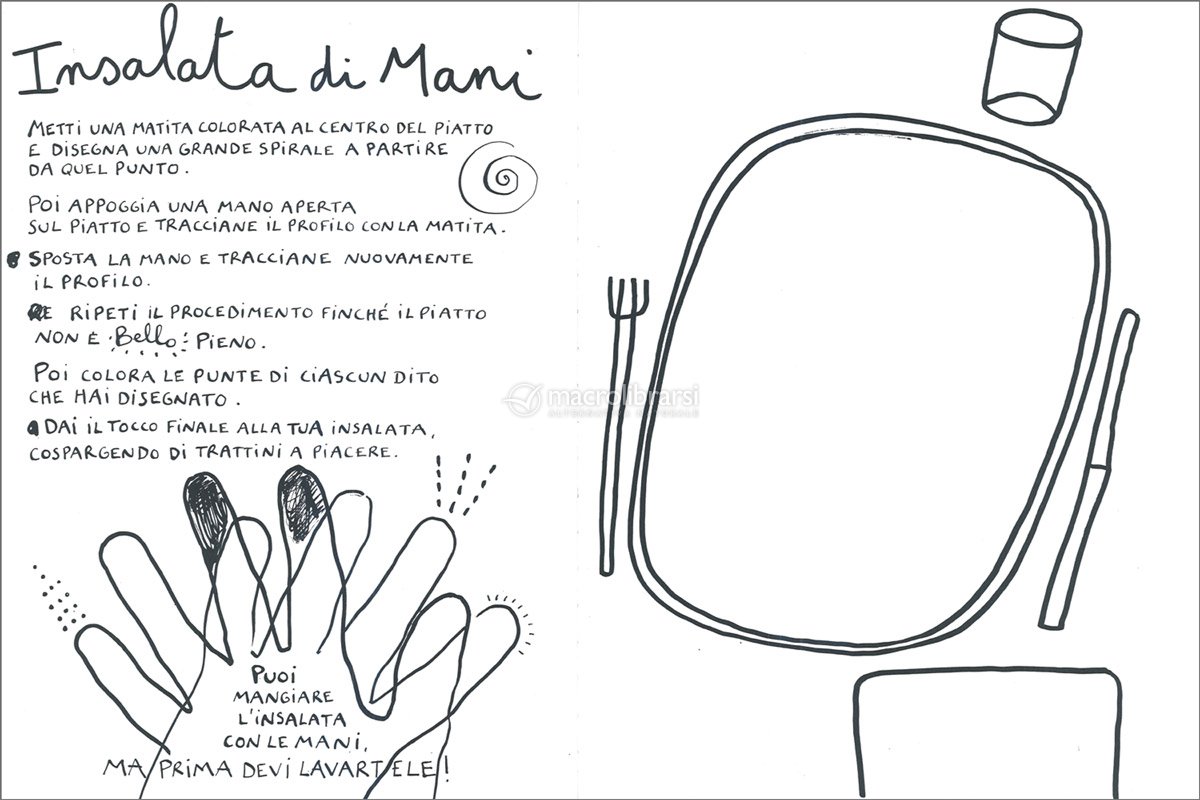 Insalata di Mani
METTI UNA MATITA COLORATA AL CENTRO DEL PIATTO
E DISEGNA UNA GRANDE SPIRALE A PARTIRE
DA QUEL PUNTO.
POI APPOGGIA UNA MANO APERTA
SUL PIATTO E TRACCIANE IL PROFILO CON LA MATITA.
SPOSTA LA MANO E TRACCIANE NUOVAMENTE
IL PROFILO.
RIPETI IL PROCEDIMENTO FINCHÉ IL PIATTO
NON È Bello PIENO.
POI COLORA LE PUNTE DI CIASCUN DITO
CHE HAI DISEGNATO.
DAI IL TOCCO FINALE ALLA TUA INSALATA,
COSPARGENDO DI TRATTINI A PIACERE.
PUOI
MANGIARE
L'INSALATA
CON LE MANI,
MA PRIMA DEVI LAVARTELE!
macrolibrarsi